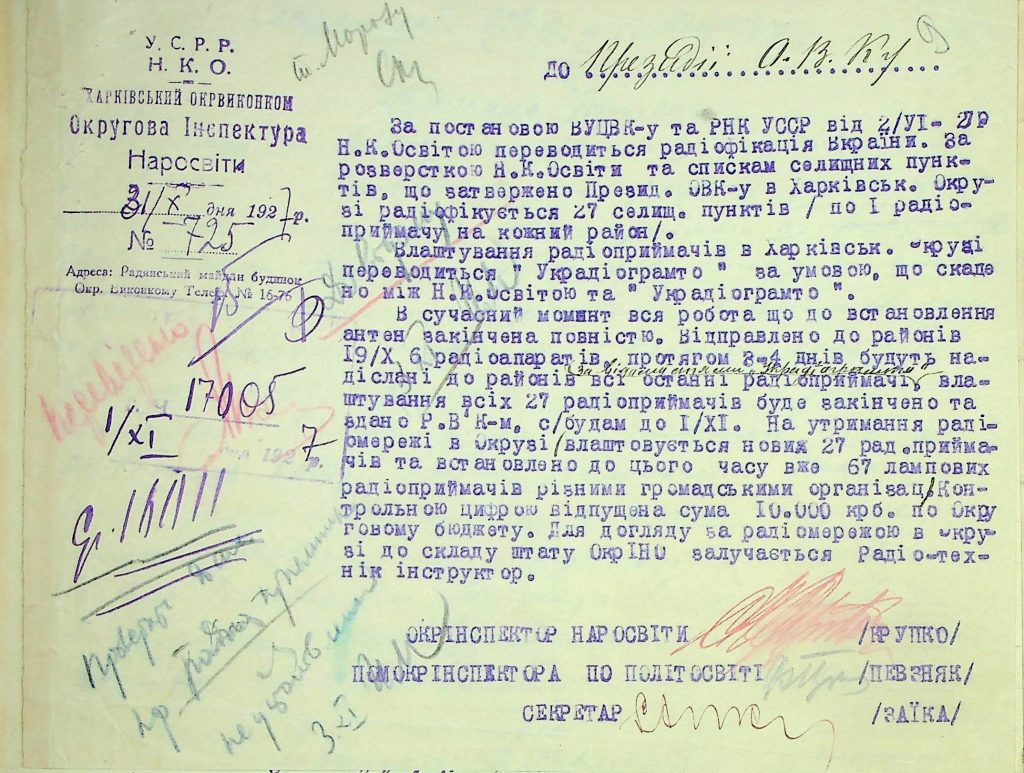 У. С. Р. Р.
Н. К. О.
ХАРКІВСЬКИЙ ОКРВИКОНКОМ
Округова Інспектура
Наросвіти
31/X дня 1927 р.
№ 725
Адреса: Радянський майдан будинок
Окр. Виконкому Телеф. № 16-76
т. Морозу
ДО Президії О. В. К-у
За постановою ВУЦВК-у та РНК УССР від 2/УІ- 27Р
Н.К.Освітою переводиться радіофікація Вкраїни. За
розверсткою Н.К.Освіти та спискам селищних пунк-
тів, що затвержено Презид. ОВК-у в Харківськ. Окру-
зі радіофікується 27 селищ. пунктів / по І радіо-
приймачу на кожний район/.
Влаштування радіоприймачів в Харківськ. Окрузі
переводиться " Украдіограмто " за умовою, що скаде
но між Н.К.Освітою та " Украдіограмто ".
В сучасний момент вся робота що до встановлення
антен закінчена повністю. Відправлено до районів
І9/Х 6 радіоапаратів, протягом 3-4 днів будуть на-
За відомостями "Украдіограмто"
діслані до районів всі останні радіоприймачі, вла-
штування всіх 27 радіоприймачів буде закінчено та
здано Р.В'К-м, с/будам до І/ХІ. На утримання раді-
омережі в Окрузі /влаштовується нових 27 рад.прийма-
чів та встановлено до цього часу вже 67 лампових
радіоприймачів різними громадськими організац/.Кон-
трольною цифрою відпущена сума І0.000 крб. по Окру
говому бюджету. Для догляду за радіомережою в Окру-
зі до складу штату ОкрІНО залучається Радіо-тех-
нік інструктор.
17005
1/XI 1927 р.
3-XI
ОКРІНСПЕКТОР НАРОСВІТИ /КРУПКО/
ПОМОКРІНСПЕКТОРА ПО ПОЛІТОСВІТІ /ПЕВЗНЯК/
СЕКРЕТАР /ЗАЇКА/